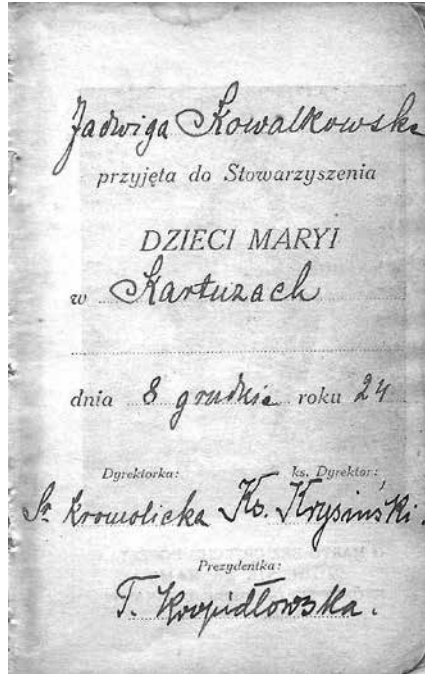 Jadwiga Kowalkowska
przyjęta do Stowarzyszenia
DZIECI MARYI
w Kartuzach
dnia 8 grudnia roku 24
Dyrektorka: ks. Dyrektor:
Sr. Kromolicka Ks. Krysiński.
Prezydentka:
T. Kropidłowska.